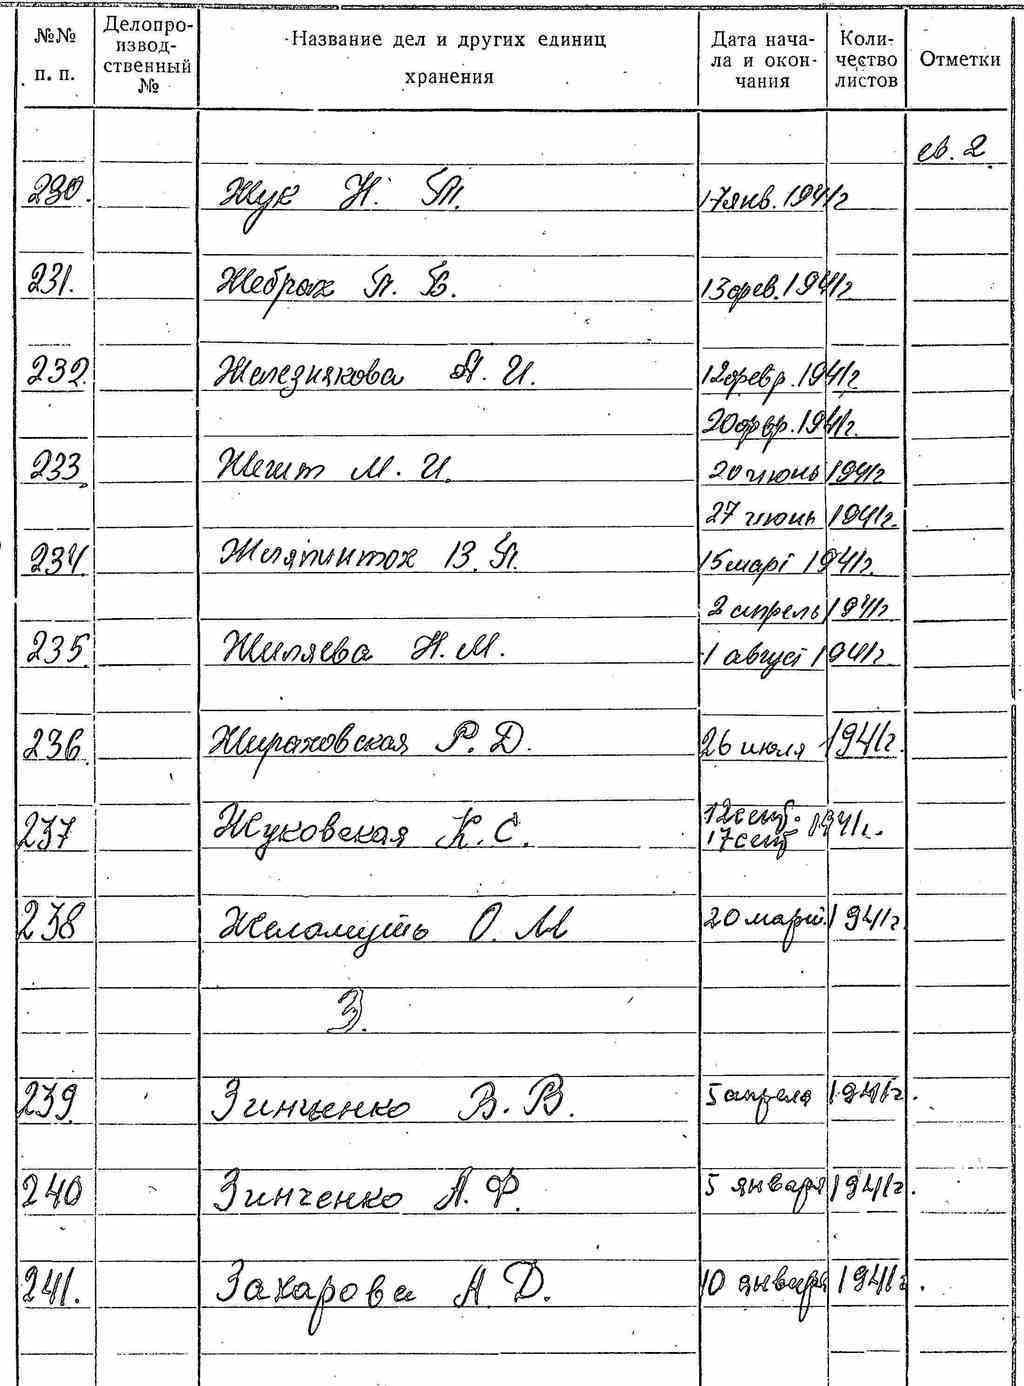 №№ п. п. Делопро-извод-ственный № Название дел и других единиц хранения Дата нача-ла и окон-чания Коли-чество листов Отметки
св. 2
230. Жук Н. П. 17 янв. 1941г
231. Жебрак П. В. 13 фев. 1941г
232. Железнякова А. И. 12 февр. 1941г
20 фвр. 1941г.
233. М. И. 20 июнь 1941г
27 июнь 1941г.
234. В. П. 15 март 1941г.
2 апрель 1941г
235. Жиляева Н. М. 1 август 1941г.
236. Жираховская Р. Д. 26 июля 1941г.
237 Жуковская К. С. 12 сент. 17 сент 1941г.
238 О. М 20 март. 1941г
З.
239. Зинченко В. В. 5 апреля 1941г.
240 Зинченко А. Ф. 5 января 1941г.
241. Захарова А Д. 10 января 1941г.